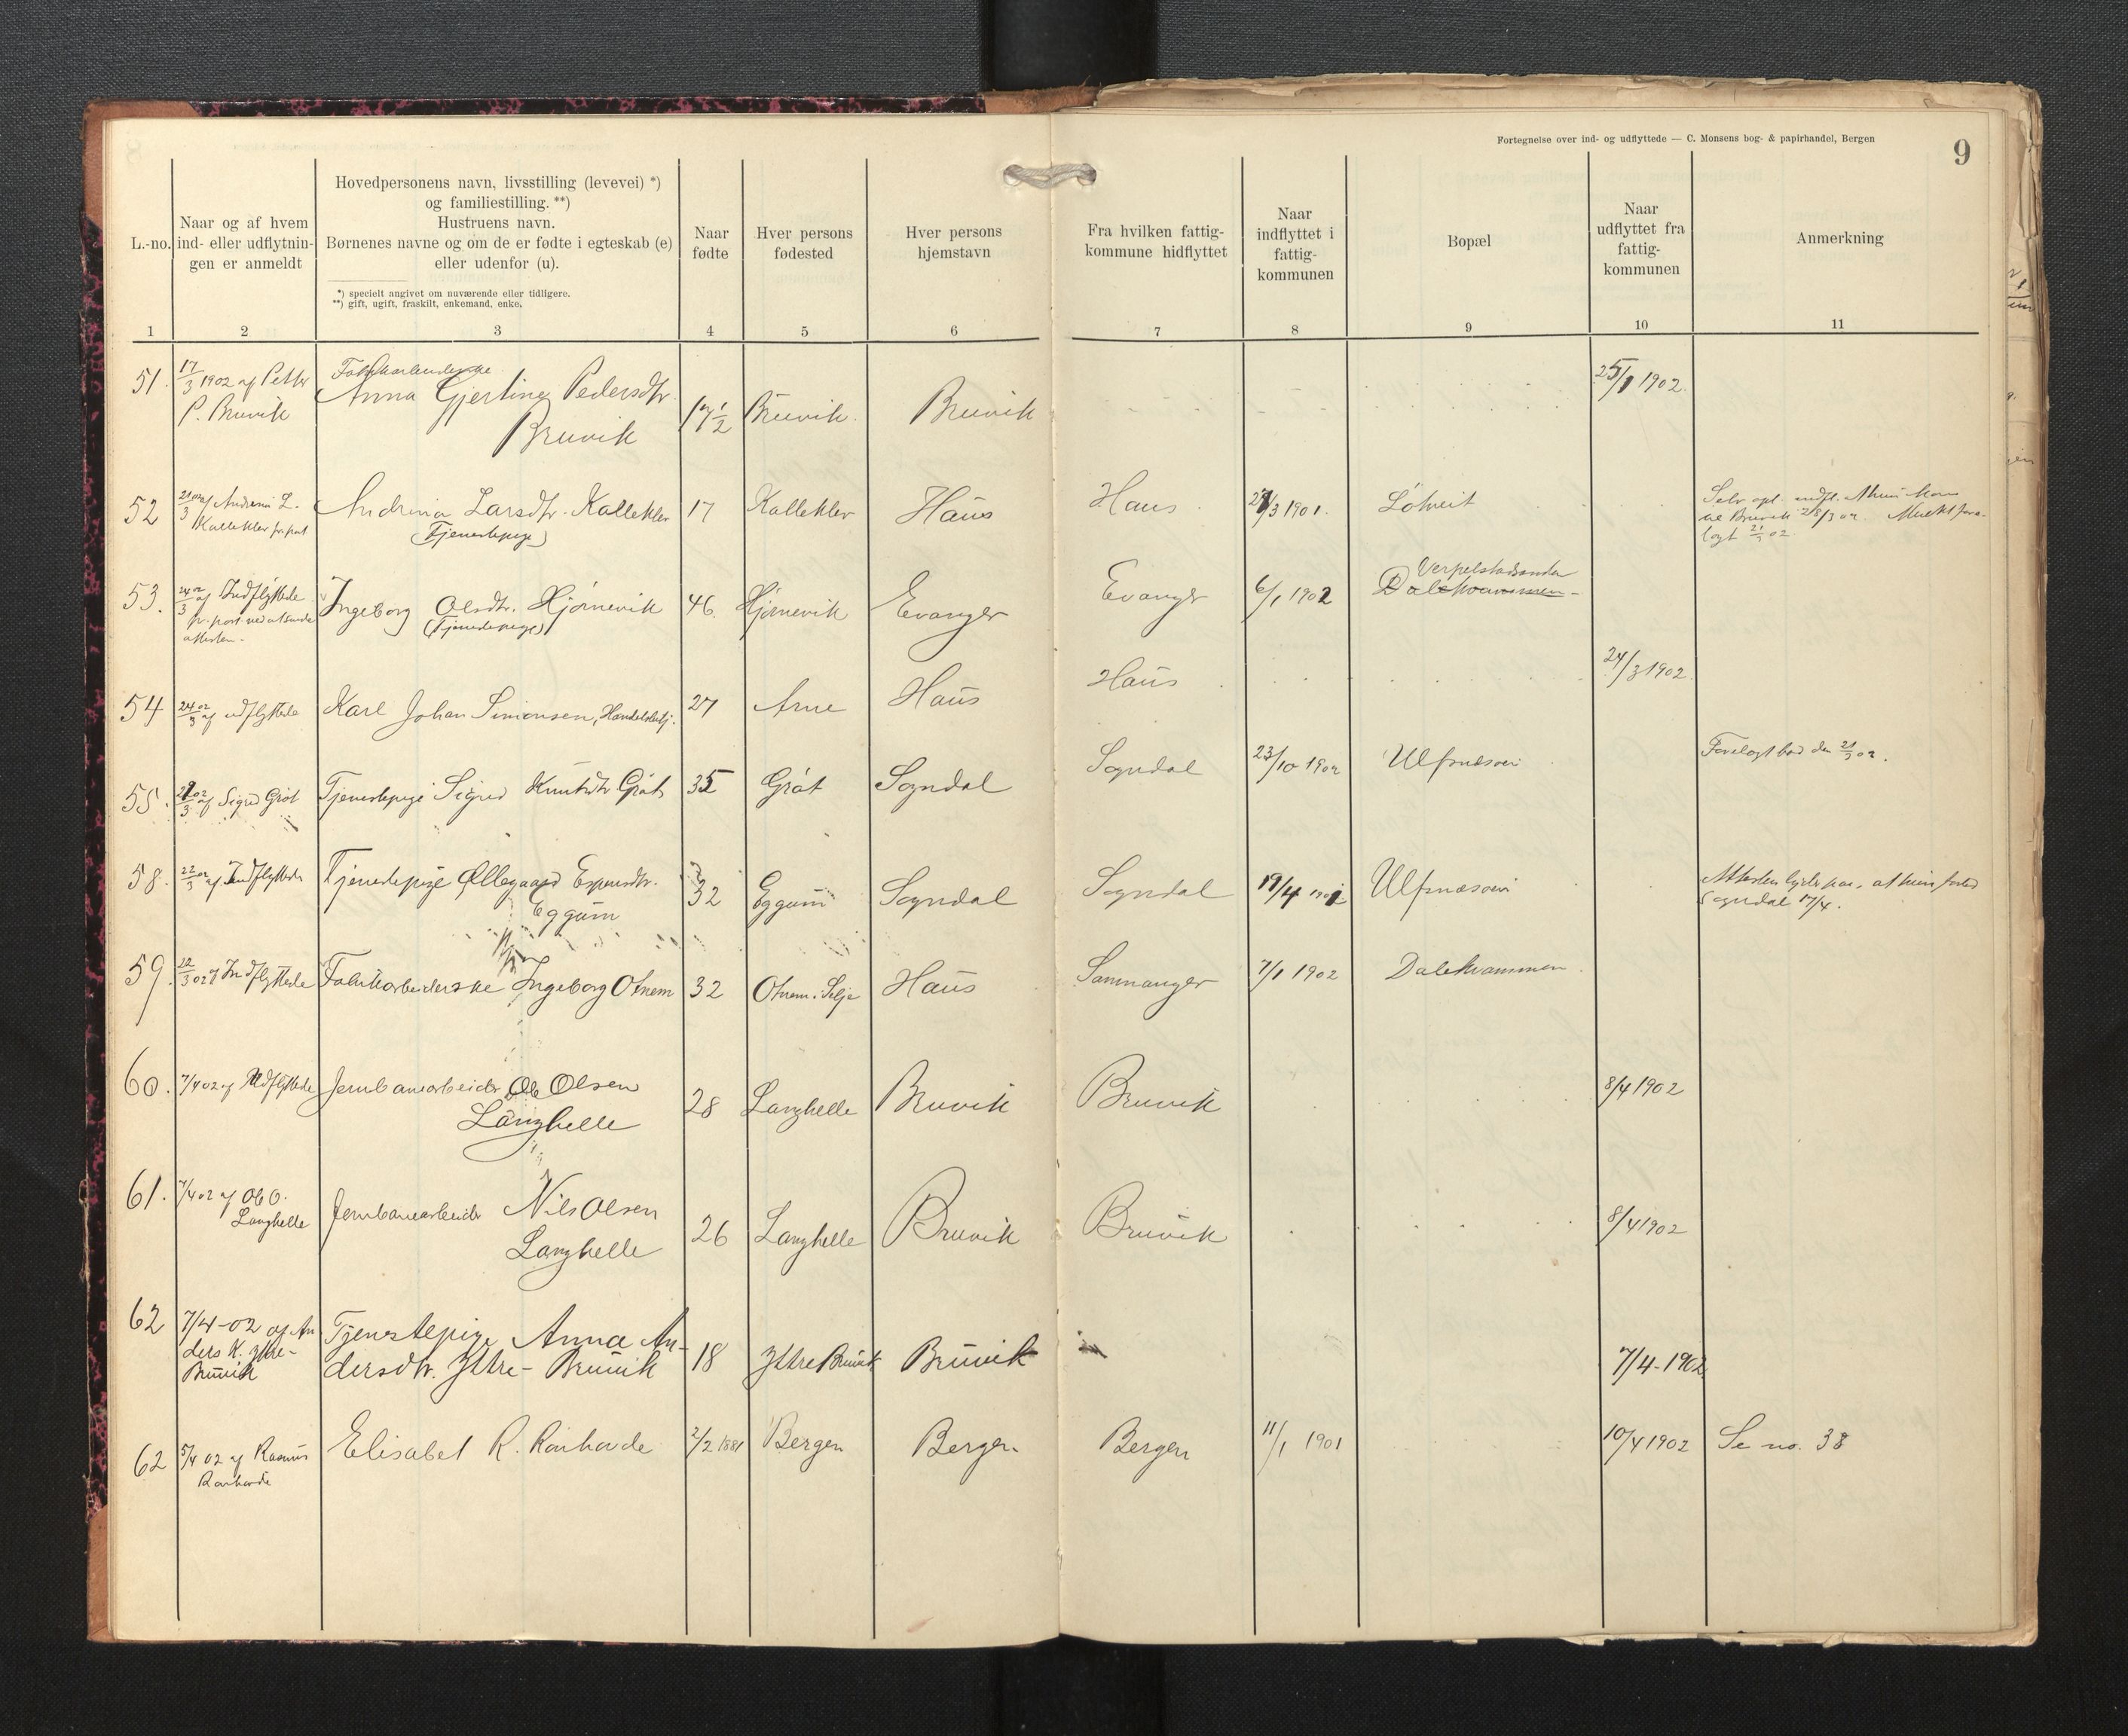 Fortegnelse over ind- og udflyttede — C. Monsens bog- & papirhandel, Bergen
9
L.-no.
Naar og af hvem
ind- eller udflytnin-
gen er anmeldt
Hovedpersonens navn, livsstilling (levevei) *)
og familiestilling. **)
Hustruens navn.
Børnenes navne og om de er fødte i egteskab (e)
eller udenfor (u).
*) specielt angivet om nuværende eller tidligere.
**) gift, ugift, fraskilt, enkemand, enke.
Naar
fødte
Hver persons
fødested
Hver persons
hjemstavn
Fra hvilken fattig-
kommune hidflyttet
Naar
indflyttet i
fattig-
kommunen
Bopæl
Naar
udflyttet fra
fattig-
kommunen
Anmerkning
1 2 3 4 5 6 7 8 9 10 11
51. 17/3 1902 af Petter
P. Bruvik
Fabrikarbeiderske
Anna Gjertine Pedersdtr.
Bruvik
17 1/2 Bruvik. Bruvik 25/1 1902.
52 21/3 02 af Andrina L.
Kallekler pr. post
Andrina Larsdtr. Kallekler
(Tjenestepige)
17 Kallekler Haus Haus 27/3 1901. Lotveit
Selv opl. indfl.
21/3 02
53. 24/3 02 af Indflyttede
pr. post ved at sende
attesten -
Ingeborg Olsdtr. Hjørnevik
(Tjenestepige)
46. Hjørnevik Evanger Evanger 6/1 1902
Dalekvammen -
54 24/3 02 af udflyttede
Karl Johan Simonsen, Handelsbetj.
27 Arne Haus Haus 24/3 1902.
55. 21/3 02 af Sigrid Grot
Tjenestepige Sigrid Knutsdtr Grot
35 Grot Sogndal Sogndal 23/10 1902 Ulfsnæsøen
Forelagt bod den 21/3 02.
58. 22/3 02 af Indflyttede
Tjenestepige Øllegaard Espensdtr.
Eggum
32 Eggum Sogndal Sogndal 19/4 1902 Ulfsnæsøen
Attesten lyder paa, at hun forlod
Sogndal 17/4.
59. 22/3 02 af Indflyttede
Fabrikarbeiderske Ingeborg Otnem
32 Otnem i Selje Haus Samnanger 7/1 1902 Dalekvammen
60. 7/4 02 af Udflyttede
Jernbanearbeider Ole Olsen
Langhelle
28 Langhelle Bruvik Bruvik 8/4 1902
61. 7/4 02 af Ole O.
Langhelle
Jernbanearbeider Nils Olsen
Langhelle
26 Langhelle Bruvik Bruvik 8/4 1902
62 7/4-02 af An
ders K. Yttre-
Bruvik
Tjenstepige Anna An-
dersdtr. Yttre- Bruvik
18 Yttre Bruvik Bruvik 7/4-1902.
62 5/4 02 af Rasmus
Ronhovde
Elisabet R. Ronhovde
2/2 1881 Bergen Bergen Bergen 11/1 1901 10/4 1902 Se no. 38